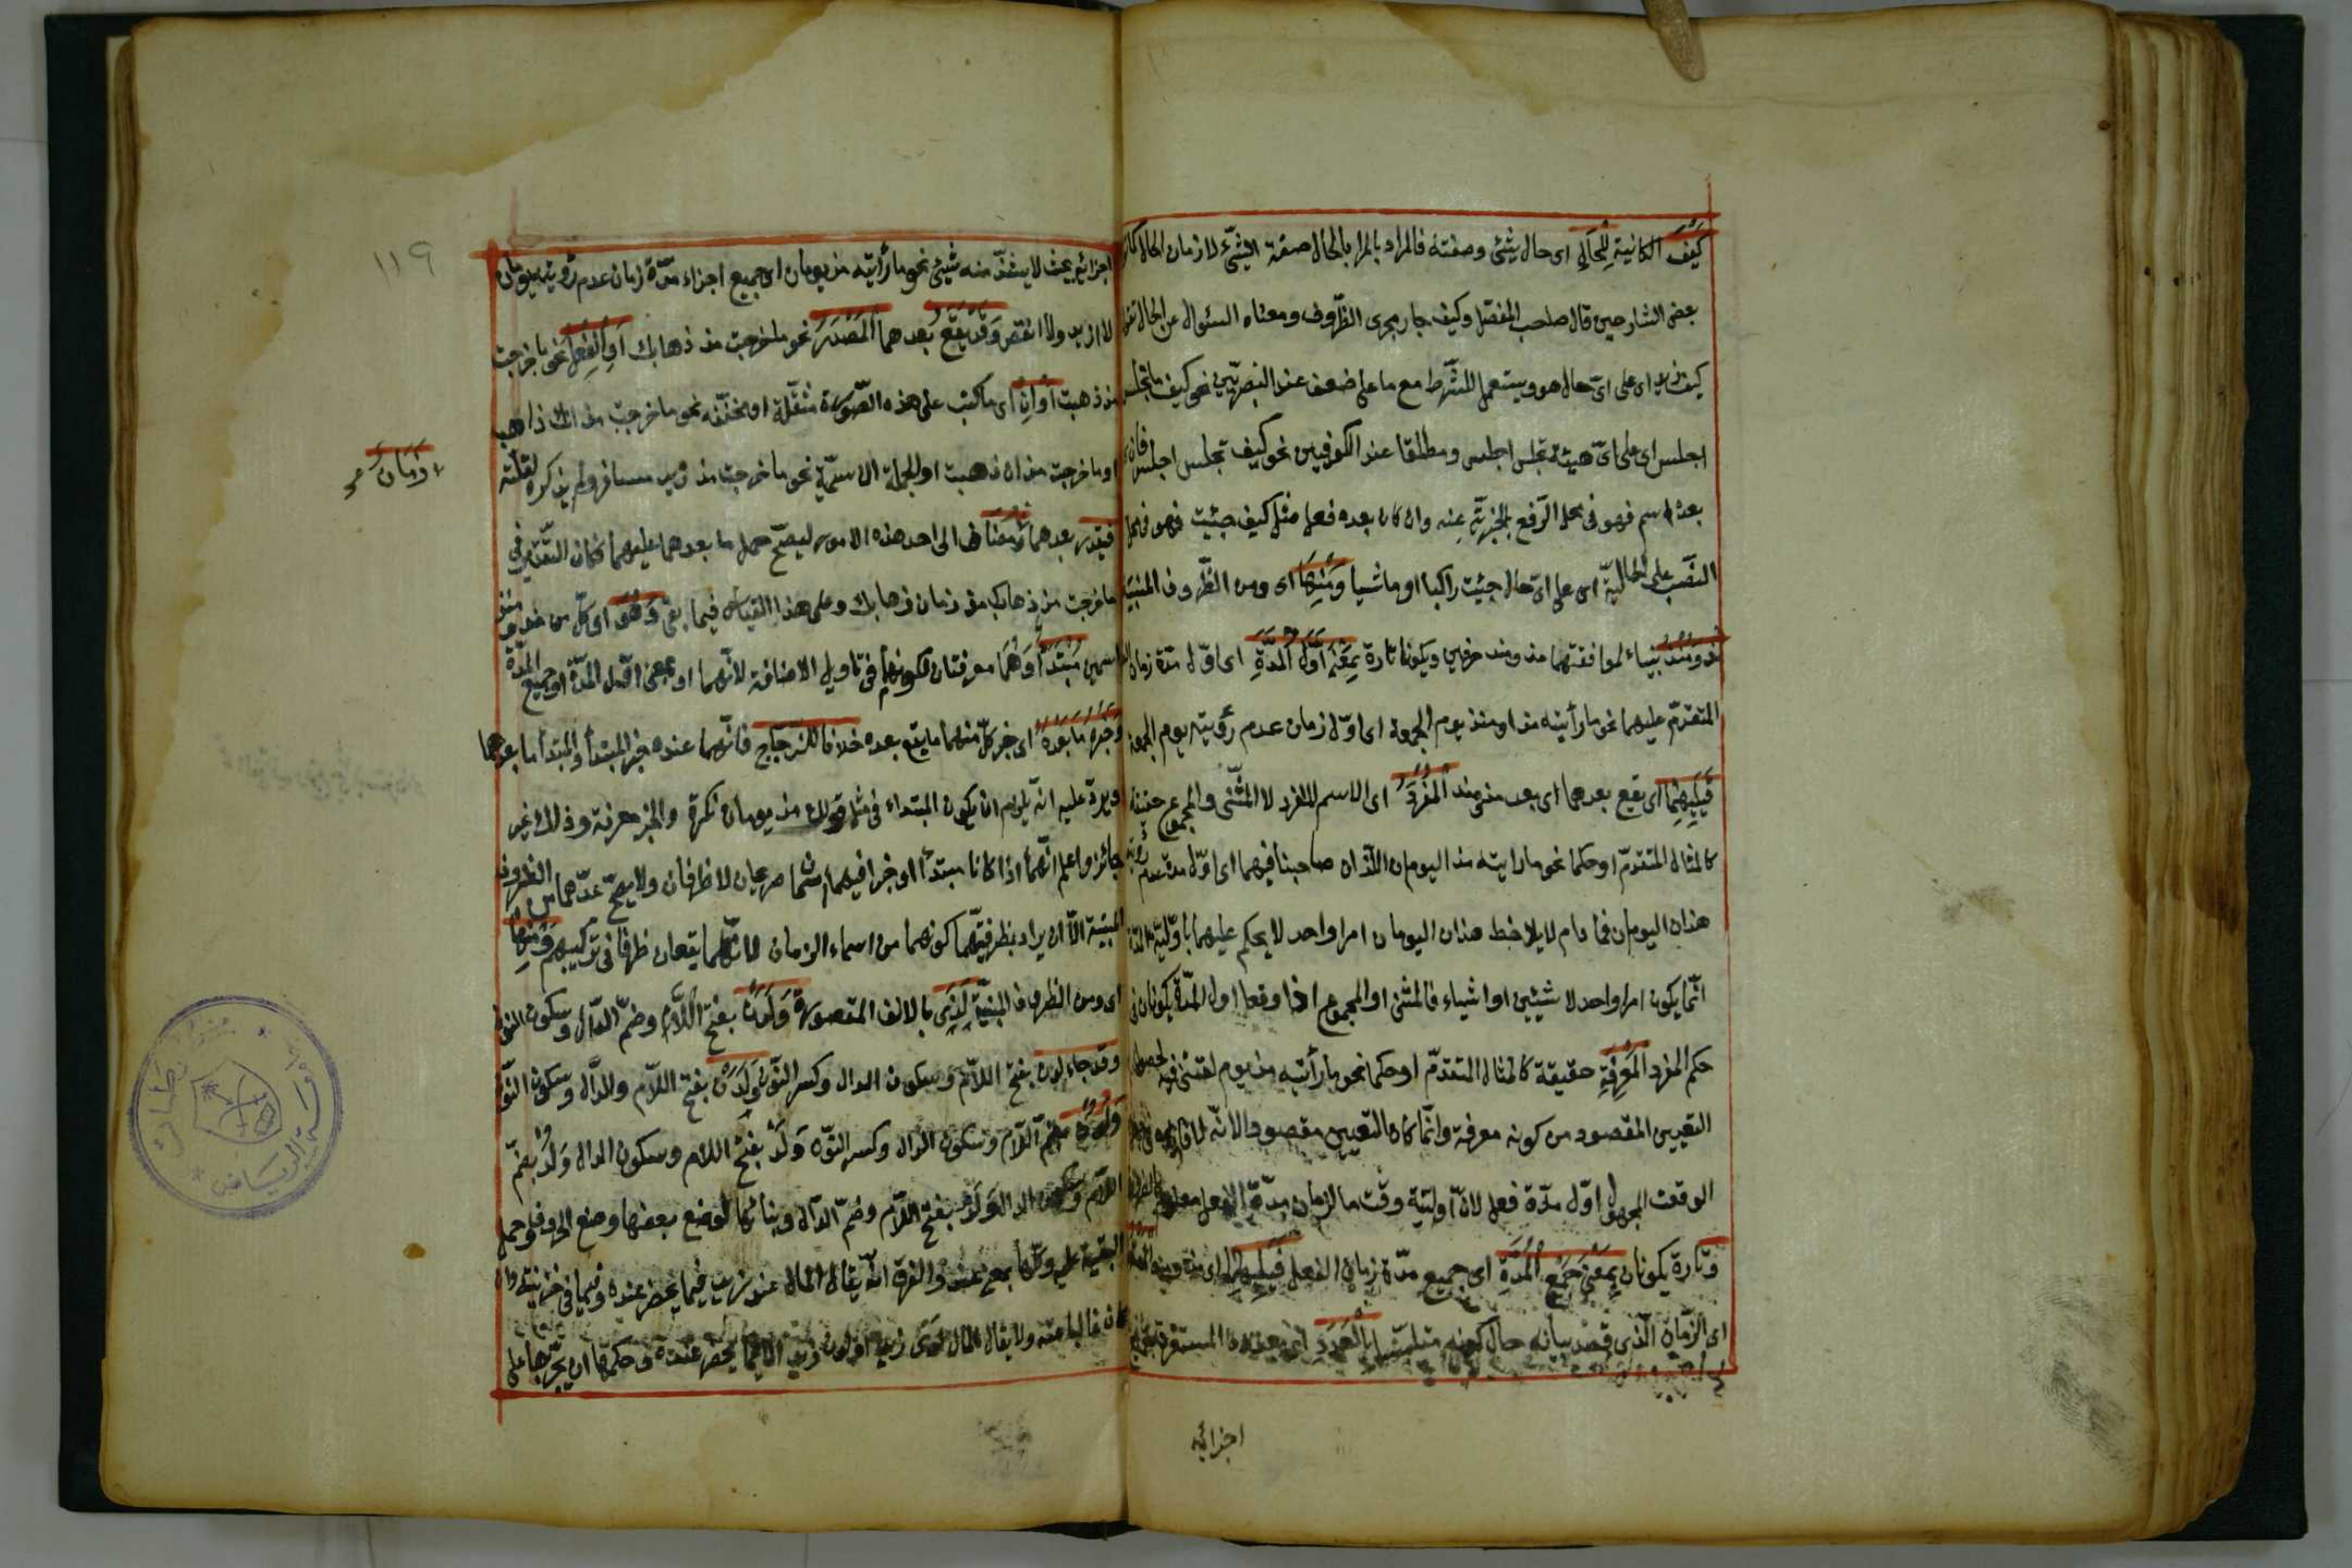 كَيْفَ الكائنية لِلْحَالِ اى حال شئ وصفته فالمراد بالحال صفة الشئ لا زمان الحال كما
بعض الشارحين قال صاحب المفصل وكيف جار مجرى الظروف ومعناه السئوال عن الحال
كيف زيد اى على اىّ حال هو ويستعمل للشّرط مع ما على ضعف عند البصريّين نحو كيف ما تجلس
اجلس اى على اىّ هيئة تجلس اجلس ومطلقا عند الكوفيين نحو كيف تجلس اجلس فان
بعده اسم فهو فى محل الرفع بالخبرية عنه وان كان بعده فعل مثل كيف جئت فهو فى محل
النّصب على الحالية اى على اىّ حال جئت راكبا او ماشيا وَمِنْهَا اى ومن الظروف المبنية
مذ ومنذ بنياء لموافقتهما مذ ومنذ حرفين ويكونا تارة بِمَعْنَى أَوَّلِ الْمُدَّةِ اى اوّل مدّة زمان
المتقدّم عليهما نحو ما رأيته مذ او منذ يوم الجمعة اى اوّل زمان عدم رؤيته يوم الجمعة
فَيَلِيهِمَا اى يقع بعدهما اى بعد مذ ومنذ الْمُفْرَدُ اى الاسم المفرد لا المثنّى والمجموع حقيقة
كالمثال المتقدّم او حكما نحو ما رايته مذ اليومان اللّذان صاحبنا فيهما اى اوّل مدة عدم رؤيته
هذان اليومان فما دام لا يلاحظ هذان اليومان امرا واحد لا يحكم عليهما باوّلية المدّة
انّما يكون امرا واحد لا شيئين او اشياء فالمثنى او المجموع اذا وقعا اول المدّة يكونان فى
حكم المفرد الْمَعْرِفَةِ حقيقة كالمثال المتقدّم او حكما نحو ما رأيته مذ يوم لقيتنى فيه لحصول
التعيين المقصود من كونه معرفة وانّما كان التعيين مقصودا لانّه
الوقت المجهول اوّل مدّة فعل لانّ اولية وقت ما لزمان مدّة الفعل معلوم
وَتارة يكونان بِمَعْنَى جَمِيعِ الْمُدَّةِ اى جميع مدّة زمان الفعل فَيَلِيهِمَا اى مذ ومنذ
اى الزّمان الّذى قصد بيانه حال كونه متلبّسا بِالْعَدَدِ المستغرق
اجزائه
اجزائه بحيث لا يشذّ منه شئ نحو ما رأيته مذ يومان اى جميع اجزاء مدّة زمان عدم رؤيته يومان
لا ازيد ولا انقص وَقَدْ يَقَعُ بعدهما الْمَصْدَرُ نحو ما خرجت مذ ذهابك أَوِ الْفِعْلُ نحو ما خرجت
مذ ذهبت أَوْ أَنْ اى ما كتب على هذه الصّورة مثقّلة او مخفّفة نحو ما خرجت مذ انك ذاهب
او ما خرجت مذ ان ذهبت او الجملة الاسميّة نحو ما خرجت مذ زيد مسافر ولم يذكره لقلته
فيقدّر بعدهما زمان مضاف الى احد هذه الامور ليصحّ حمل ما بعدهما عليهما فكان التقدير فى
ما خرجت مذ ذهابك مذ زمان ذهابك وعلى هذا القياس فيما بقى وَهُوَ اى كلّ من مذ ومنذ
اسمين مُبْتَدَأٌ وهما معرفتان لكونهما فى تاويل الاضافة لأنّهما او بمعنى اوّل المدّة او جميع المدّة
وَخَبَرُهُ مَا بَعْدَهُ اى خبر كلّ منهما ما يقع بعده خلافا للزجّاج فانّهما عنده خبر المبتدأ والمبتدأ ما بعدهما
ويردّ عليه انّه يلزم ان يكون المبتداء فى مثل قولك مذ يومان نكرة والخبر معرفة وذلك غير
جائز واعلم انّهما اذا كانا مبتدأ او خبرا فيهما اسما صريحان لا ظرفان ولا يصحّ عدّهما من الظروف
المبنية الّا ان يراد بظرفيتهما كونهما من اسماء الزمان لانّهما يقعان ظرفا فى تركيبهم وَمِنْهَا
اى ومن الظروف المبنيّة لَدَى بالالف المقصورة وَلَدُنْ بفتح اللّام وضمّ الدّال وسكون النون
وقد جاء لدن بفتح اللّام وسكون الدال وكسر النّون وَلَدَنْ بفتح اللّام والدّال وسكون النّون
وَلُدْنِ بضم اللّام وسكون الدال وكسر النّون وَلَدْ بفتح اللام وسكون الدال وَلُدْ بضمّ
اللّام وسكون الدال وَلَدُ بفتح اللّام وضمّ الدّال وبنائها لوضع بعضها وضع الحروف وحمل
البقيّة عليه وكلّها بمعنى عند والفرق انّه يقال المال عند زيد فيما يحضر عنده وفيما فى خزينته وان
كان غائبا عنه ولا يقال المال لدى زيد او لدن زيد الّا فيما يحضر عنده وحكمها ان يجرّ بها على
زَمَانٌ صح
١١٩